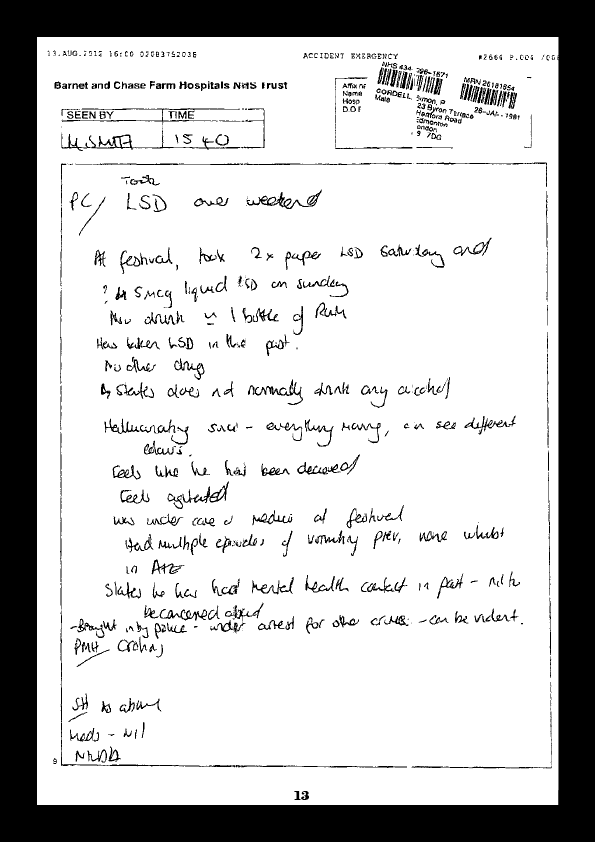 13.AUG.2012 16:00 02083752036 ACCIDENT EMERGENCY #2664 P.004 /00
Barnet and Chase Farm Hospitals NHS Trust
NHS 434 -096-1671
MRN 26181654
Affix nr
Name CORDELL, Simon, P
Hosp Male
D.O.B
23 Byron Terrace
Hertford Road
Edmonton
London
9 7DG
26-JAN-1981
SEEN BY TIME
M.SMITH 1540
Took
PC/ LSD over weekend
At festival, took 2x paper LSD Saturday and
? 5mcg liquid LSD on Sunday
Also drunk 1 bottle of Rum
Has taken LSD in the past.
No other drug
States does not normally drink any alcohol
Hallucinating since - everything moving, can see different
colours.
Feels like he has been deceived
Feels agitated
Was under care of medics at festival
Had multiple episodes of vomiting prev, none whilst
in A+E
States he has had mental health contact in past - nil to
be concerned about
- Brought in by police - under arrest for other crimes - can be violent.
PMH Crohns
SH as above
Meds - Nil
NKDA
9
13